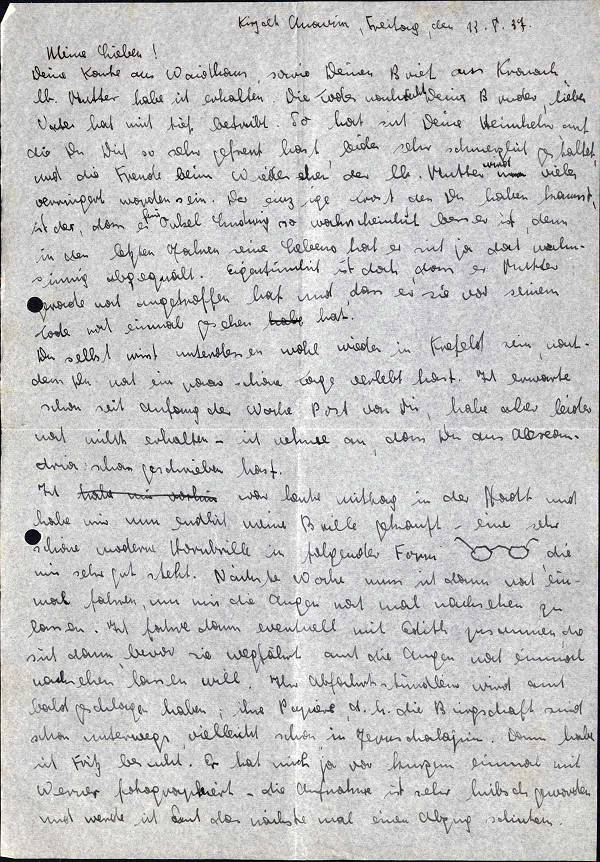 Kirjath Anavim, Freitag, den 13.8.37.
Meine Lieben!
Deine Karte aus Waidhaus, sowie Deinen Brief aus Kronach,
lb. Mutter habe ich erhalten. Die Todesnachricht Deines Bruder, lieber
Vater hat mich tief betrübt. So hat sich Deine Heimkehr auf
die Du Dich so sehr gefreut hast, leider sehr schmerzlich gestaltet,
und die Freude beim Wiedersehen der lb. Mutter wird um vieles
verringert worden sein. Der einzige Trost den Du haben kannst,
ist der, dass es für Onkel so wahrscheinlich besser ist, denn
in den letzten Jahren seine Lebens hat er sich ja doch wahn-
sinnig abgequält. Eigentümlich ist doch, dass er Mutter
gerade noch angetroffen hat und dass er sie vor seinem
Tode noch einmal gesehen habe hat.
Du selbst wirst unterdessen wohl wieder in Krefeld sein, nach-
dem Du noch ein paar schöne Tage verlebt hast. Ich erwarte
schon seit Anfang der Woche Post von Dir, habe aber leider
noch nichts erhalten – ich nehme an, dass Du aus Alexan-
dria schon geschrieben hast.
Ich habe mir vorhin war heute mittag in der Stadt und
habe mir nun endlich meine Brille gekauft – eine sehr
schöne moderne Hornbrille in folgender Form die
mir sehr gut steht. Nächste Woche muss ich dann noch ein-
mal fahren, um mir die Augen noch mal nachsehen zu
lassen. Ich fahre dann eventuell mit Edith zusammen, da
sich dann, bevor sie wegfährt auch die Augen noch einmal
nachsehen lassen will. Ihr Abfahrtsstündlein wird auch
bald geschlagen haben; ihre Papiere, d.h. die Bürgschaft sind
schon unterwegs, vielleicht schon in Jeruschalajim. Dann habe
ich Fritz besucht. Er hat mich ja vor kurzem einmal mit
Werner photographiert – die Aufnahme ist sehr hübsch geworden
und werde ich Euch das nächste mal einen Abzug schicken.